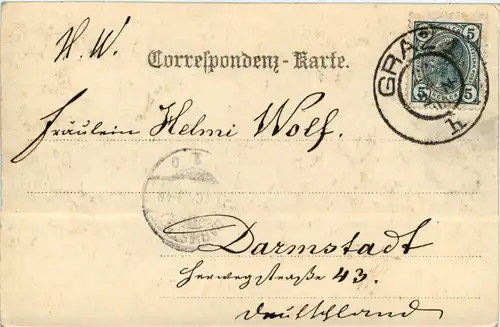 H. W.
Correspondenz-Karte.
GRAZ 1
5 5
h
Fräulein Helmi Wolf.
Darmstadt
Herwegstraße 43.
Deutschland